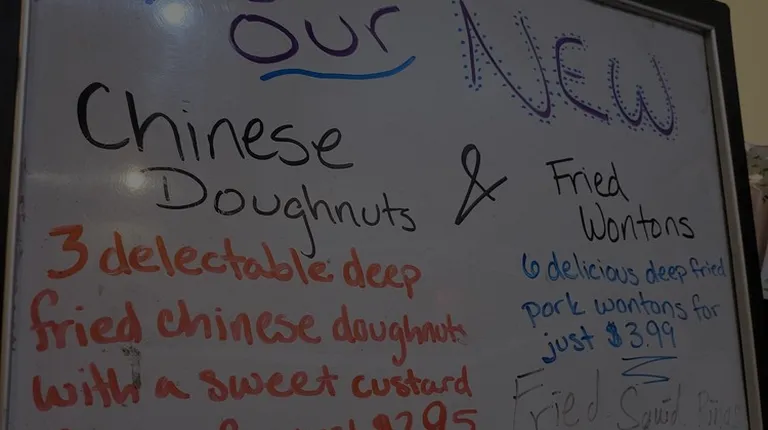 Our NEW
Chinese
Doughnuts
&
Fried
Wontons
3 delectable deep
fried chinese doughnuts
with a sweet custard
6 delicious deep fried
pork wontons for
just $3.99
Fried Squid